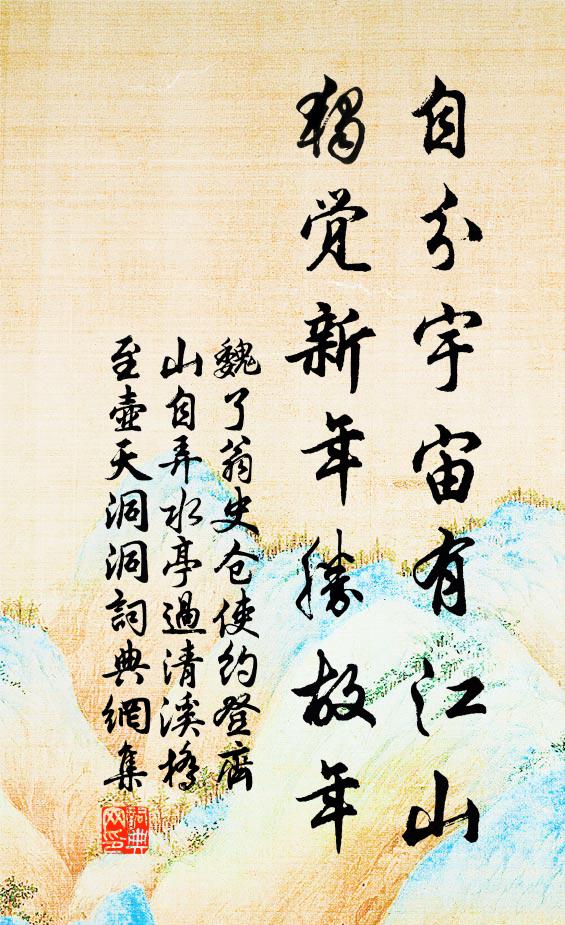 自分宇宙有江山
獨覺新年勝故年
魏了翁史仓使約登齊
山自弄水亭過清溪橋
至壺天洞洞詞典網集
詞典网印